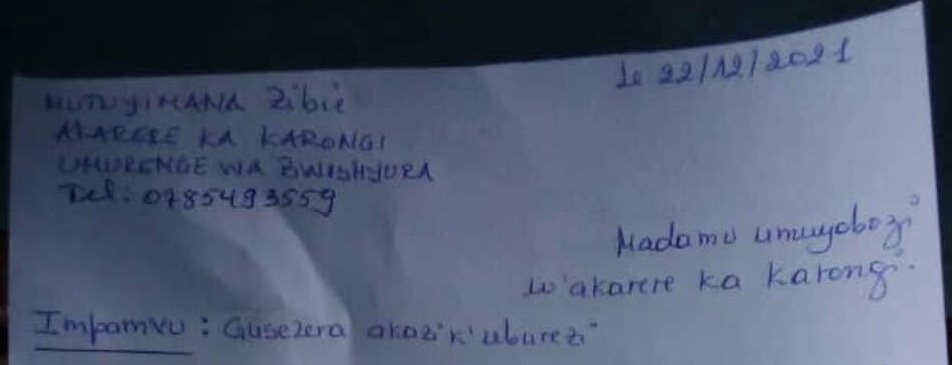 Le 22/12/2021
MUTUYIMANA Zibie
AKARERE KA KARONGI
UMURENGE WA BWISHYURA
Tel: 0785493559
Madamu umuyobozi
w'akarere ka Karongi.
Impamvu : Gusezera akazi k'uburezi